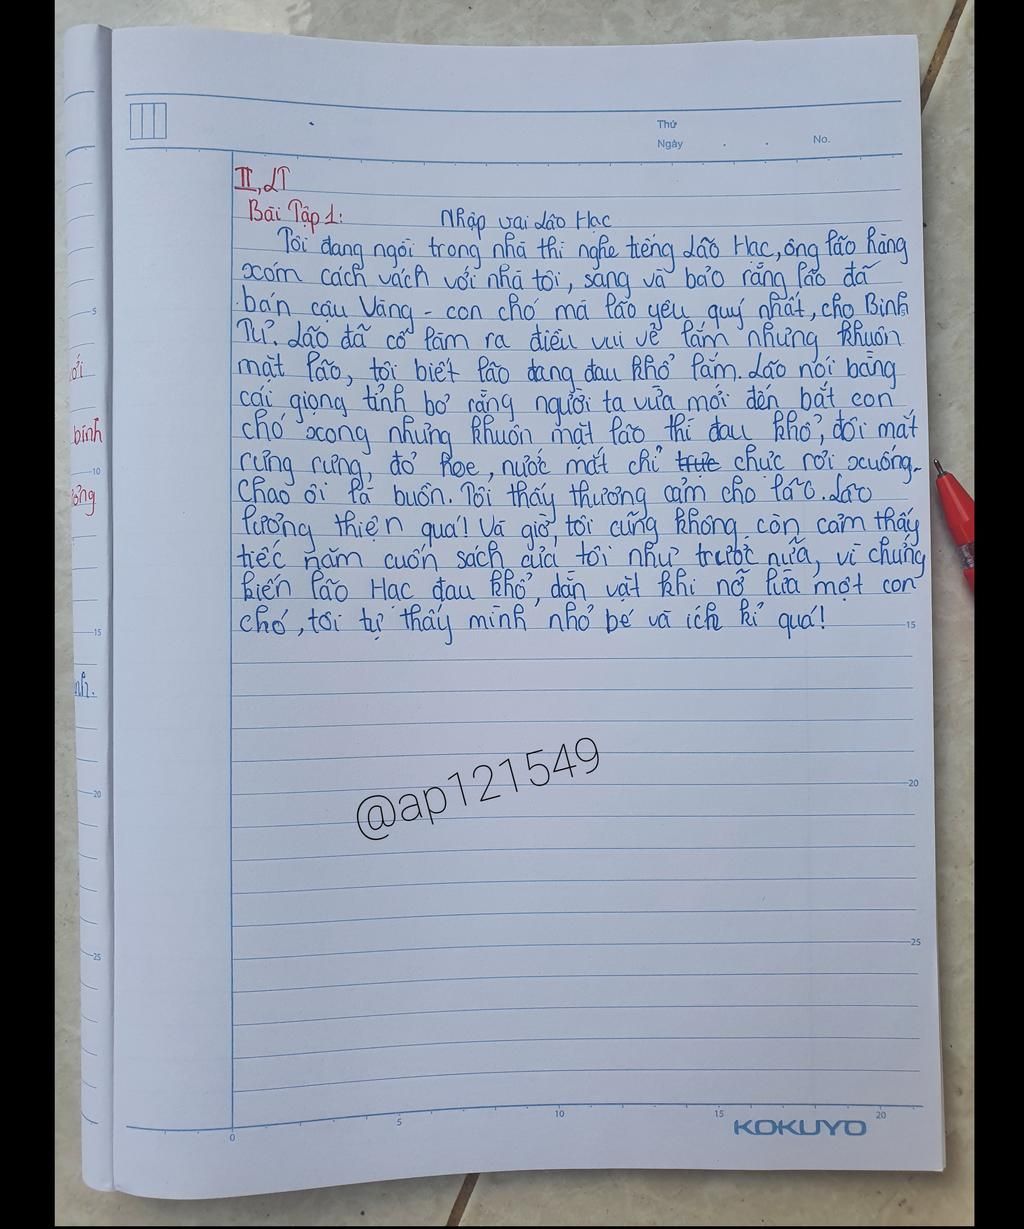 Thứ
Ngày . . No.
II, LT
Bài Tập 1: Nhập vai Lão Hạc
Tôi đang ngồi trong nhà thì nghe tiếng Lão Hạc, ông lão hàng
xóm cách vách với nhà tôi, sang và bảo rằng lão đã
bán cậu Vàng - con chó mà lão yêu quý nhất, cho Binh
Tư. Lão đã cố làm ra điều vui vẻ lắm nhưng khuôn
mặt lão, tôi biết lão đang đau khổ lắm. Lão nói bằng
cái giọng tỉnh bơ rằng người ta vừa mới đến bắt con
chó xong nhưng khuôn mặt lão thì đau khổ, đôi mắt
rưng rưng, đỏ hoe, nước mắt chỉ trực chực rơi xuống.
Chao ôi là buồn. Tôi thấy thương cảm cho lão. Lão
lương thiện quá! Và giờ, tôi cũng không còn cảm thấy
tiếc năm cuốn sách của tôi như trước nữa, vì chứng
kiến lão Hạc đau khổ, dằn vặt khi nỡ lừa một con
chó, tôi tự thấy mình nhỏ bé và ích kỉ quá!
@ap121549
ới
bính
ưởng
nh.
5
10
15
20
25
15
20
25
0 5 10 15 20
KOKUYO